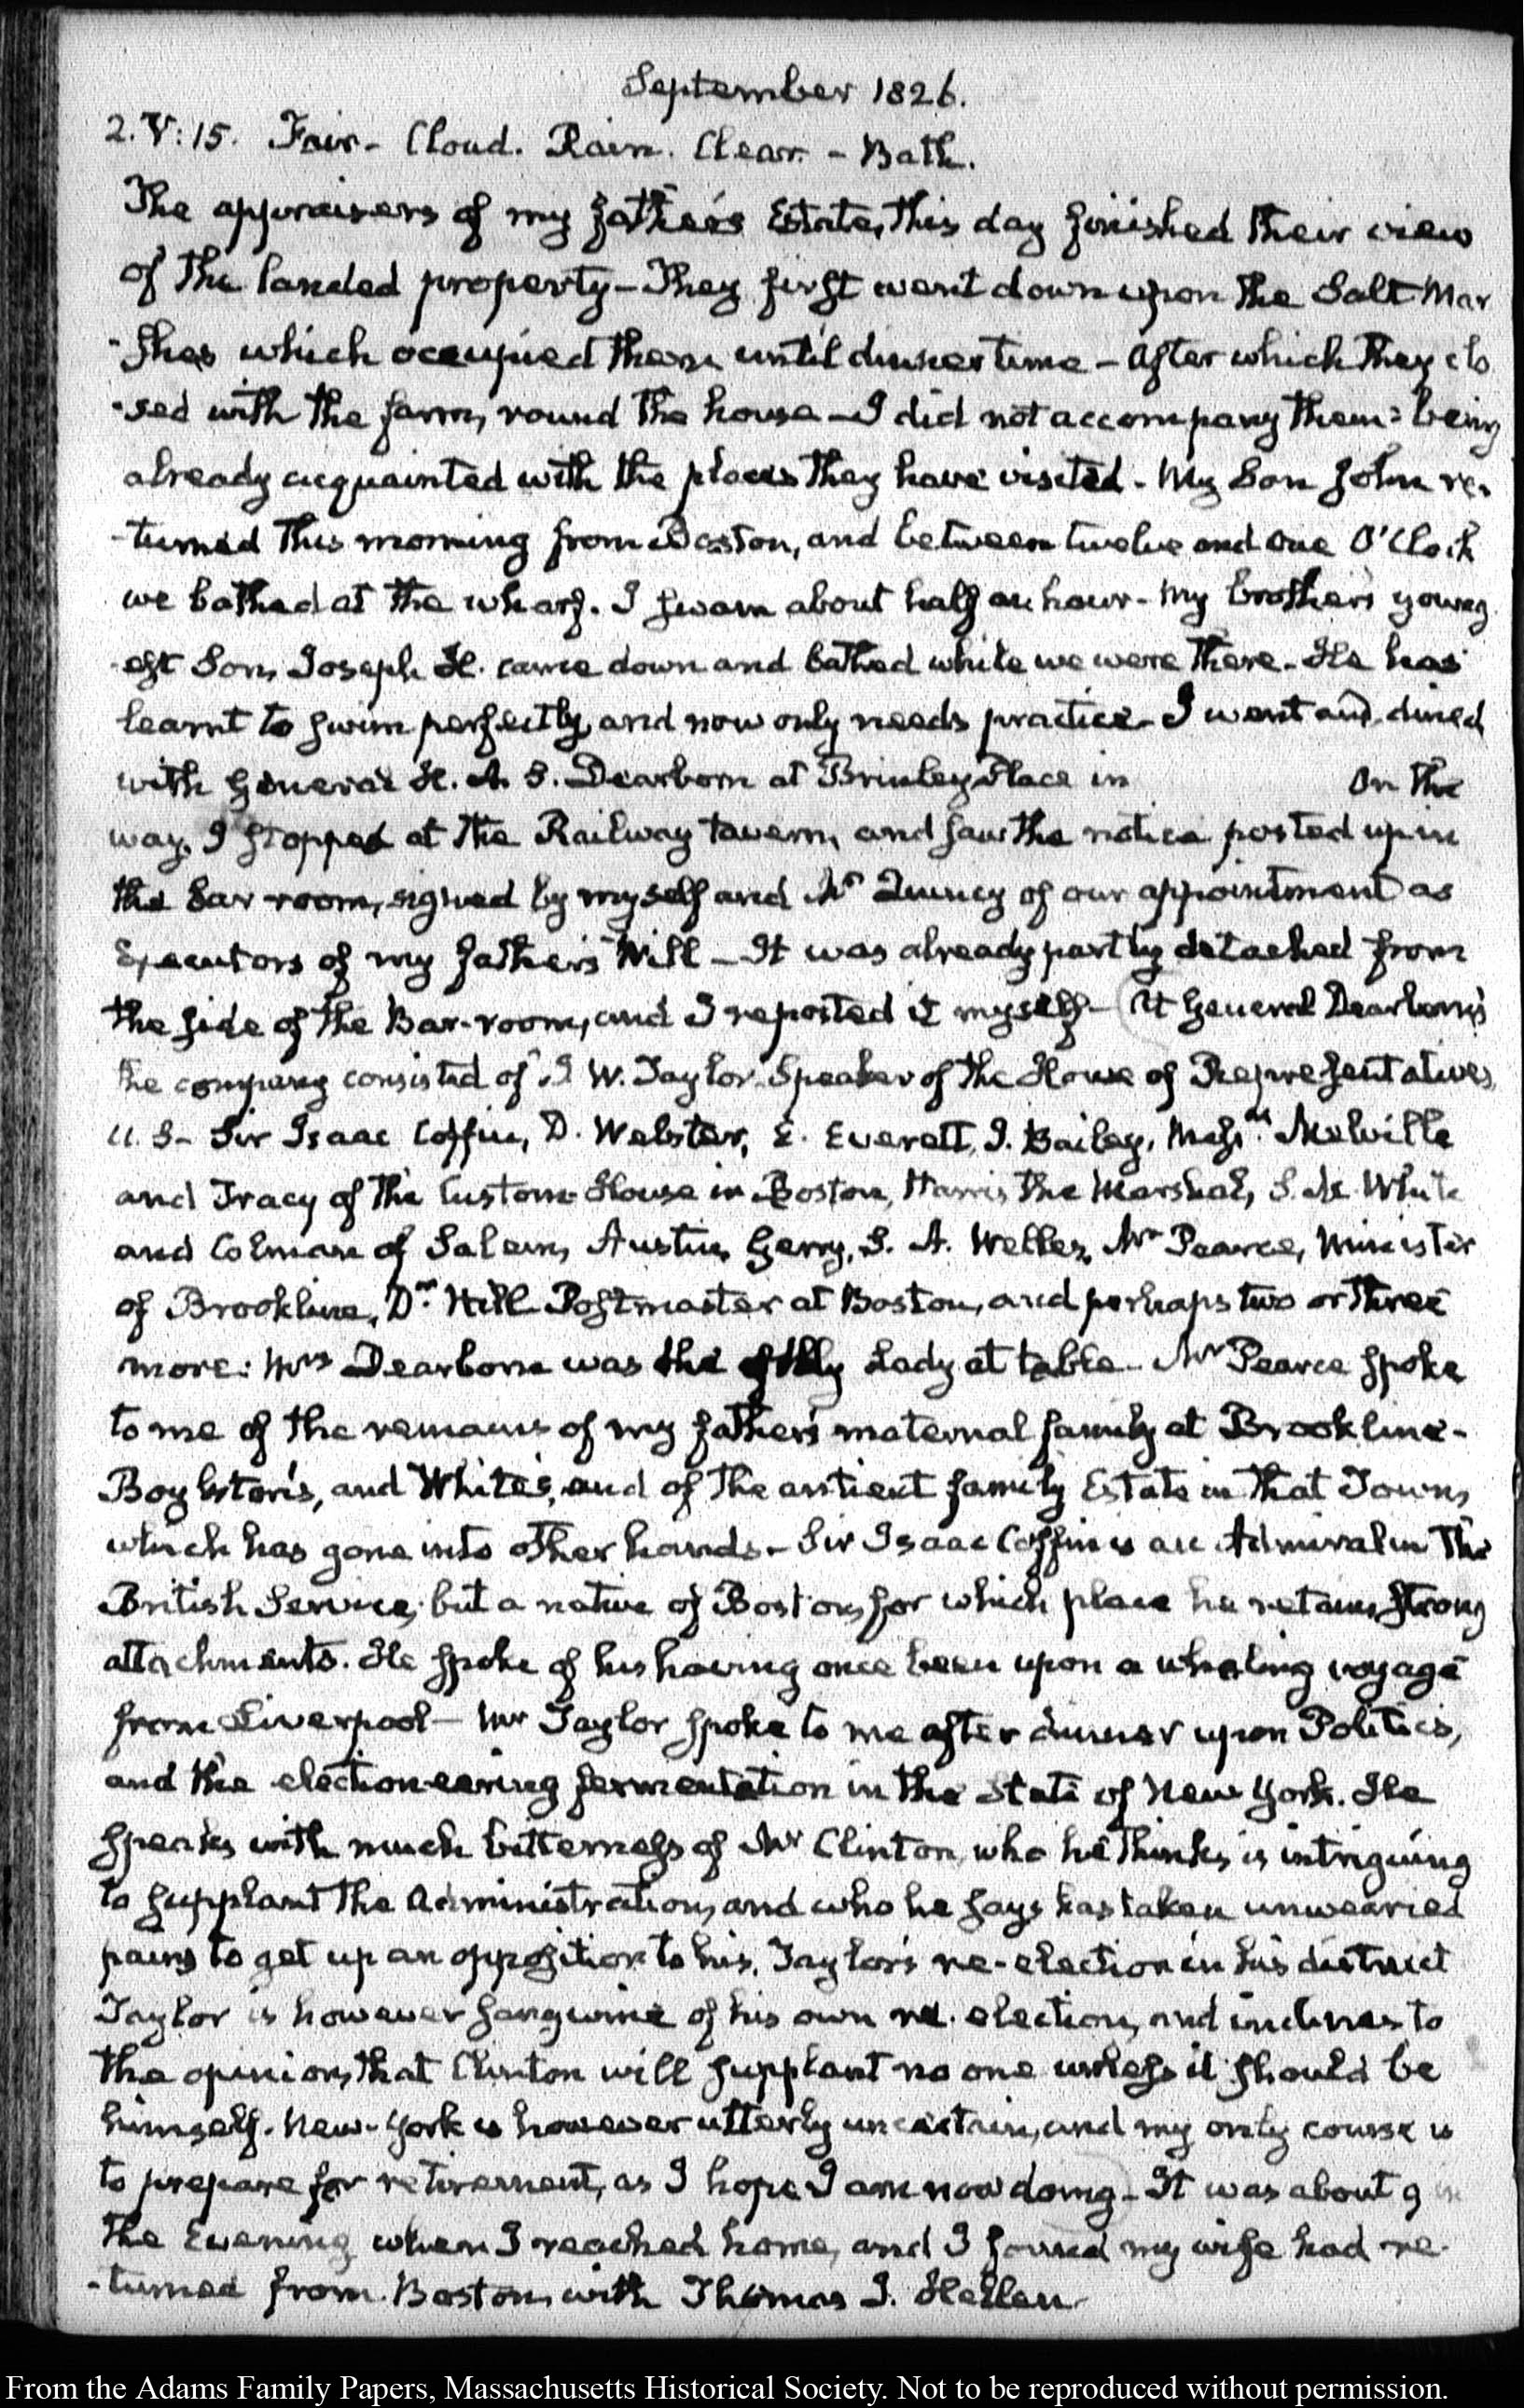 September 1826.
2. V:15. Fair- Cloud. Rain. Clear. - Bath.
The appraisers of my father's Estate, this day finished their view
of the landed property - They first went down upon the Salt Mar
-shes which occupied them until dinner time - After which they clo
-sed with the farm, round the house - I did not accompany them: being
already acquainted with the places they have visited - My Son John re-
-turned this morning from Boston, and between twelve and one O'Clock
we bathed at the wharf. I swam about half an hour - My brother's young
-est Son, Joseph H. came down and bathed while we were there - He has
learnt to swim perfectly, and now only needs practice - I went and dined
with General H. A. S. Dearborn at Brinley Place in On the
way, I stopped at the Railway tavern, and saw the notice posted up in
the bar room, signed by myself and Mr Quincy of our appointment as
Executors of my father's Will - It was already partly detached from
the side of the Bar-room, and I reposted it myself - At General Dearborn's
the company consisted of J. W. Taylor Speaker of the House of Representatives
U.S - Sir Isaac Coffin, D. Webster, E. Everett, J. Bailey, Messrs Melville
and Tracy of the Custom House in Boston, Harris the Marshal, S. White
and Colman of Salem, Austin, Gerry, S. A. Welles, Mr Pearce, Minister
of Brookline, Dr Hill Postmaster at Boston, and perhaps two or three
more: Mrs Dearborn was the only Lady at table - Mr Pearce spoke
to me of the remains of my father's maternal family at Brookline -
Boylston's, and White's, and of the antient family Estate in that Town,
which has gone into other hands - Sir Isaac Coffin is an Admiral in the
British Service; but a native of Boston, for which place he retains strong
attachments. He spoke of his having once been upon a whaling voyage
from Liverpool - Mr Taylor spoke to me after dinner upon Politics,
and the electioneering fermentation in the State of New York. He
speaks with much bitterness of Mr Clinton, who he thinks is intriguing
to supplant the Administration, and who he says has taken unwearied
pains to get up an opposition to his, Taylor's re-election in his district
Taylor is however sanguine of his own re-election, and inclines to
the opinion, that Clinton will supplant no one unless it should be
himself. New-York is however utterly uncertain, and my only course is
to prepare for retirement, as I hope I am now doing - It was about 9 in
the Evening when I reached home, and I found my wife had re-
-turned from Boston, with Thomas J. Hellen
From the Adams Family Papers, Massachusetts Historical Society. Not to be reproduced without permission.